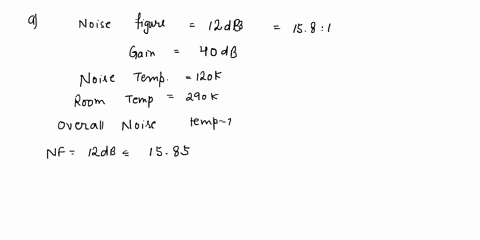 a) Noise figure = 12dB = 15.8 : 1
Gain = 40dB
Noise Temp. = 120K
Room Temp = 290K
Overall Noise temp~?
NF = 12dB = 15.85